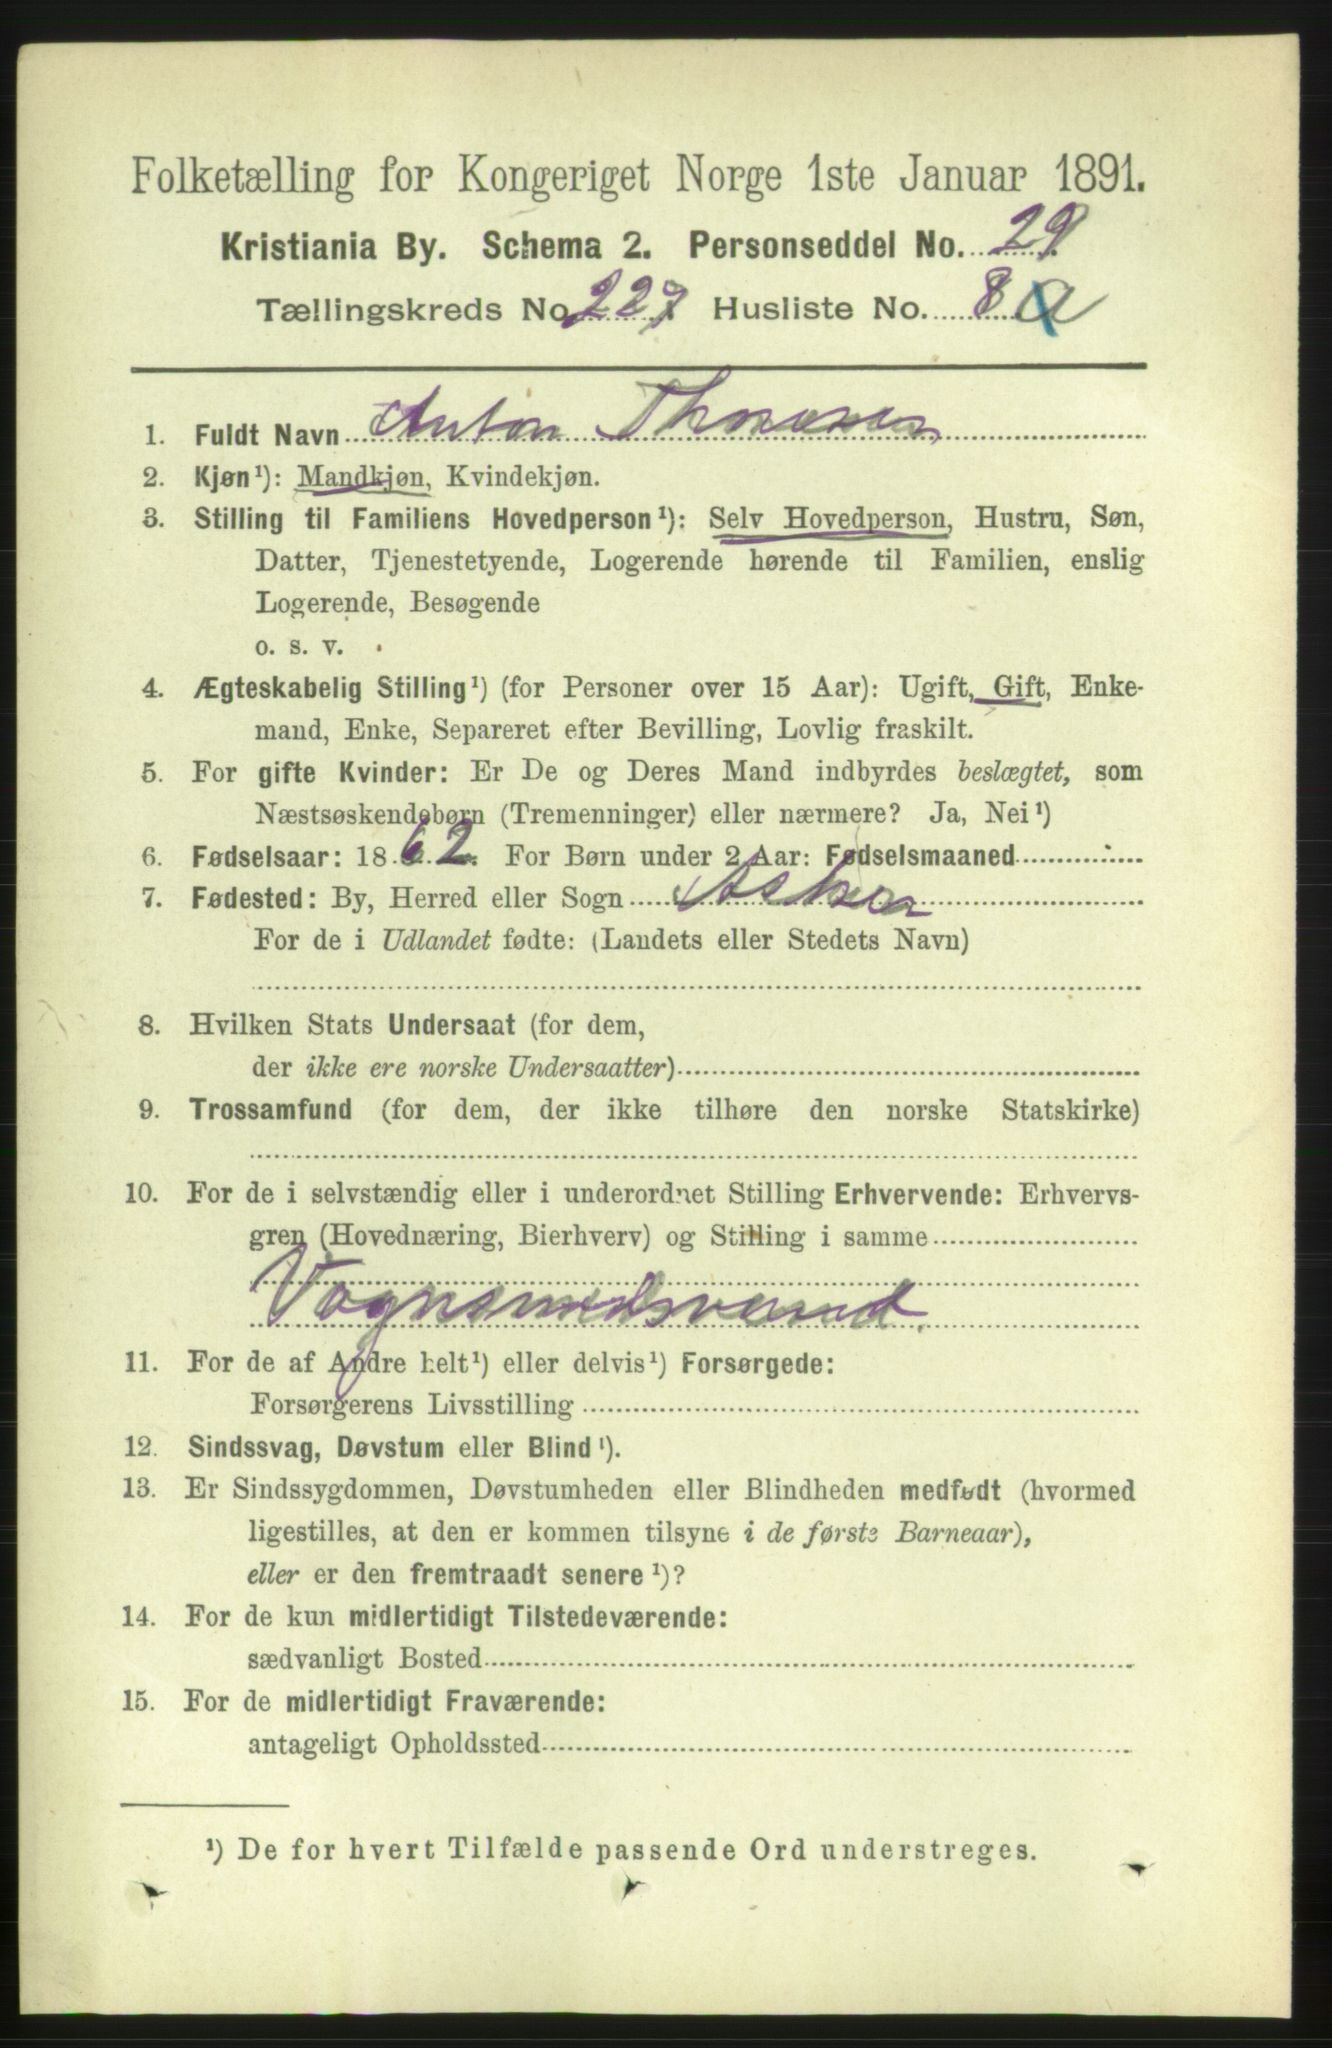 Folketælling for Kongeriget Norge 1ste Januar 1891.
Kristiania By. Schema 2. Personseddel No. 29
Tællingskreds No. 227 Husliste No. 8 a
1. Fuldt Navn Anton
2. Kjøn¹): Mandkjøn, Kvindekjøn.
3. Stilling til Familiens Hovedperson¹): Selv Hovedperson, Hustru, Søn,
Datter, Tjenestetyende, Logerende hørende til Familien, enslig
Logerende, Besøgende
o. s. v.
4. Ægteskabelig Stilling¹) (for Personer over 15 Aar): Ugift, Gift, Enke-
mand, Enke, Separeret efter Bevilling, Lovlig fraskilt.
5. For gifte Kvinder: Er De og Deres Mand indbyrdes beslægtet, som
Næstsøskendebørn (Tremenninger) eller nærmere? Ja, Nei¹)
6. Fødselsaar: 1862. For Børn under 2 Aar: Fødselsmaaned
7. Fødested: By, Herred eller Sogn Asker
For de i Udlandet fødte: (Landets eller Stedets Navn)
8. Hvilken Stats Undersaat (for dem,
der ikke ere norske Undersaatter)
9. Trossamfund (for dem, der ikke tilhøre den norske Statskirke)
10. For de i selvstændig eller i underordnet Stilling Erhvervende: Erhvervs-
gren (Hovednæring, Bierhverv) og Stilling i samme
Vognsmedsvend.
11. For de af Andre helt¹) eller delvis¹) Forsørgede:
Forsørgerens Livsstilling
12. Sindssvag, Døvstum eller Blind¹).
13. Er Sindssygdommen, Døvstumheden eller Blindheden medfødt (hvormed
ligestilles, at den er kommen tilsyne i de første Barneaar),
eller er den fremtraadt senere¹)?
14. For de kun midlertidigt Tilstedeværende:
sædvanligt Bosted
15. For de midlertidigt Fraværende:
antageligt Opholdssted
¹) De for hvert Tilfælde passende Ord understreges.